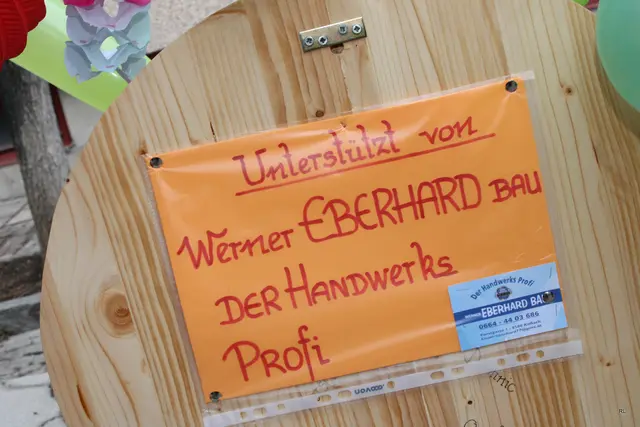 Unterstützt von
Werner EBERHARD BAU
DER HANDWERKS
PROfi
Der Handwerks Profi
EBERHARD BAU
0664 - 44 03 686
RL